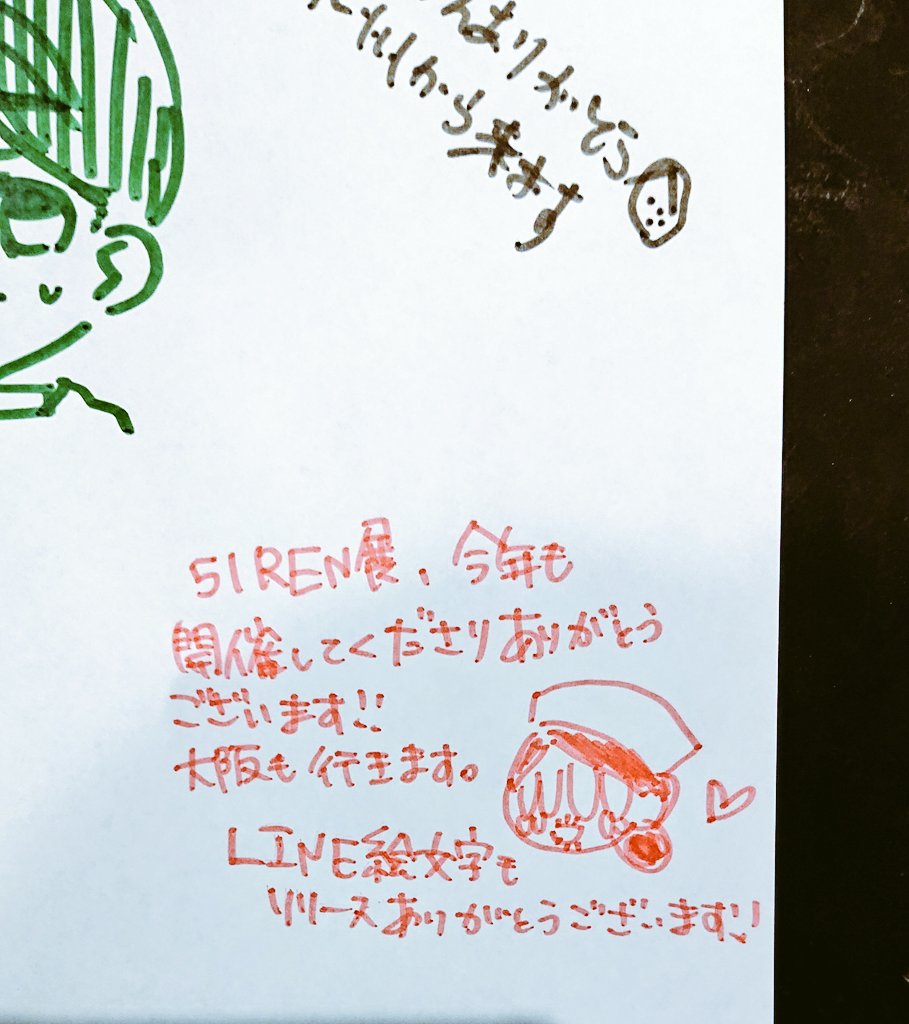 ありがとう
から来ます
SIREN展、今年も
開催してくださりありがとう
ございます!!
大阪も行きます。
LINE絵文字も
リリースありがとうございます!!